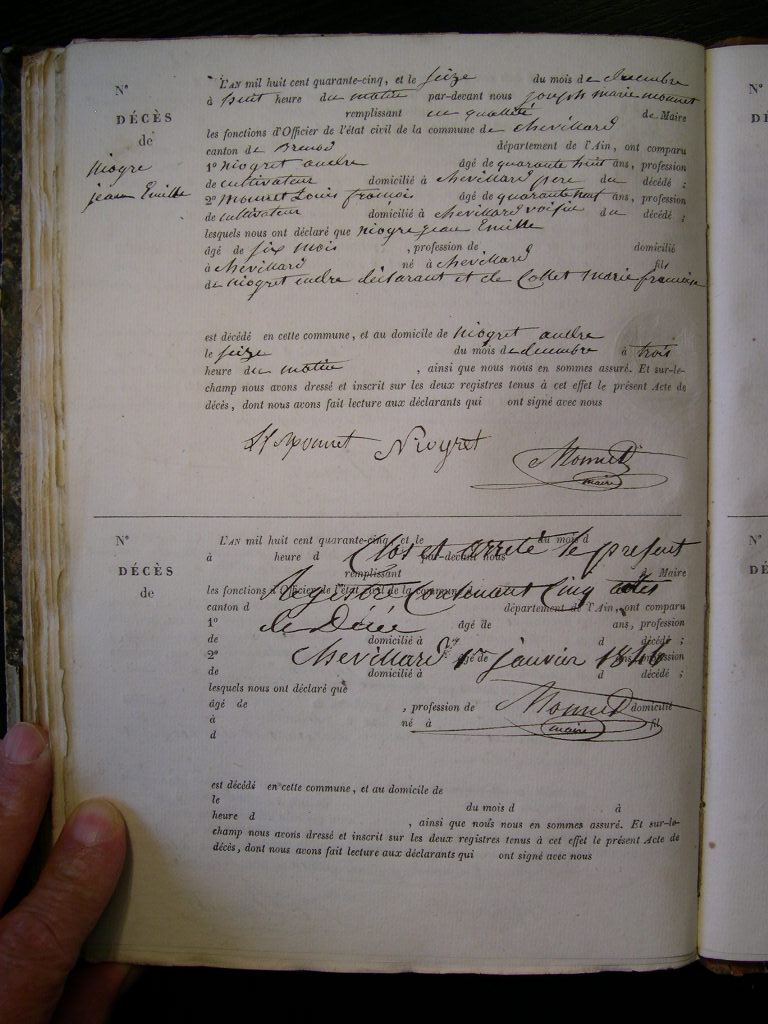 N° L'AN mil huit cent quarante-cinq, et le seize du mois de decembre
à huit heure du matin par-devant nous joseph marie monnet
DÉCÈS remplissant en qualité de Maire
de les fonctions d'Officier de l'état civil de la commune de chevillard
canton de Brenod département de l'Ain, ont comparu
niogre 1° niogret andre âgé de quarante huit ans, profession
jean Emille de cultivateur domicilié à chevillard pere du décédé ;
2° monnet Louis francois âgé de quarante huit ans, profession
de cultivateur domicilié à chevillard voisin du décédé ;
lesquels nous ont déclaré que niogre jean Emille
âgé de six mois , profession de domicilié
à chevillard né à chevillard fil
de niogret andre déclarant et de Collet marie francoise
est décédé en cette commune, et au domicile de niogret andre
le seize du mois de decembre à trois
heure du matin , ainsi que nous nous en sommes assuré. Et sur-le-
champ nous avons dressé et inscrit sur les deux registres tenus à cet effet le présent Acte de
décès, dont nous avons fait lecture aux déclarants qui ont signé avec nous
Monnet Niogret Monnet
maire
N° L'AN mil huit cent quarante-cinq, et le du mois d
Clos et arreté le present
à heure d par-devant nous
DÉCÈS remplissant d Maire
de les fonctions d'Officier de l'état civil de la commune
Registre Contenant Cinq actes
canton d département de l'Ain, ont comparu
1° âgé de ans, profession
de Décée
de domicilié à d décédé ;
2° âgé de ans, profession
chevillard 1er janvier 1846
de domicilié à d décédé ;
lesquels nous ont déclaré que
âgé de , profession de domicilié
Monnet
à né à fil
maire
d
est décédé en cette commune, et au domicile de
le du mois d à
heure d , ainsi que nous nous en sommes assuré. Et sur-le-
champ nous avons dressé et inscrit sur les deux registres tenus à cet effet le présent Acte de
décès, dont nous avons fait lecture aux déclarants qui ont signé avec nous
N°
DÉ
N°
DÉ